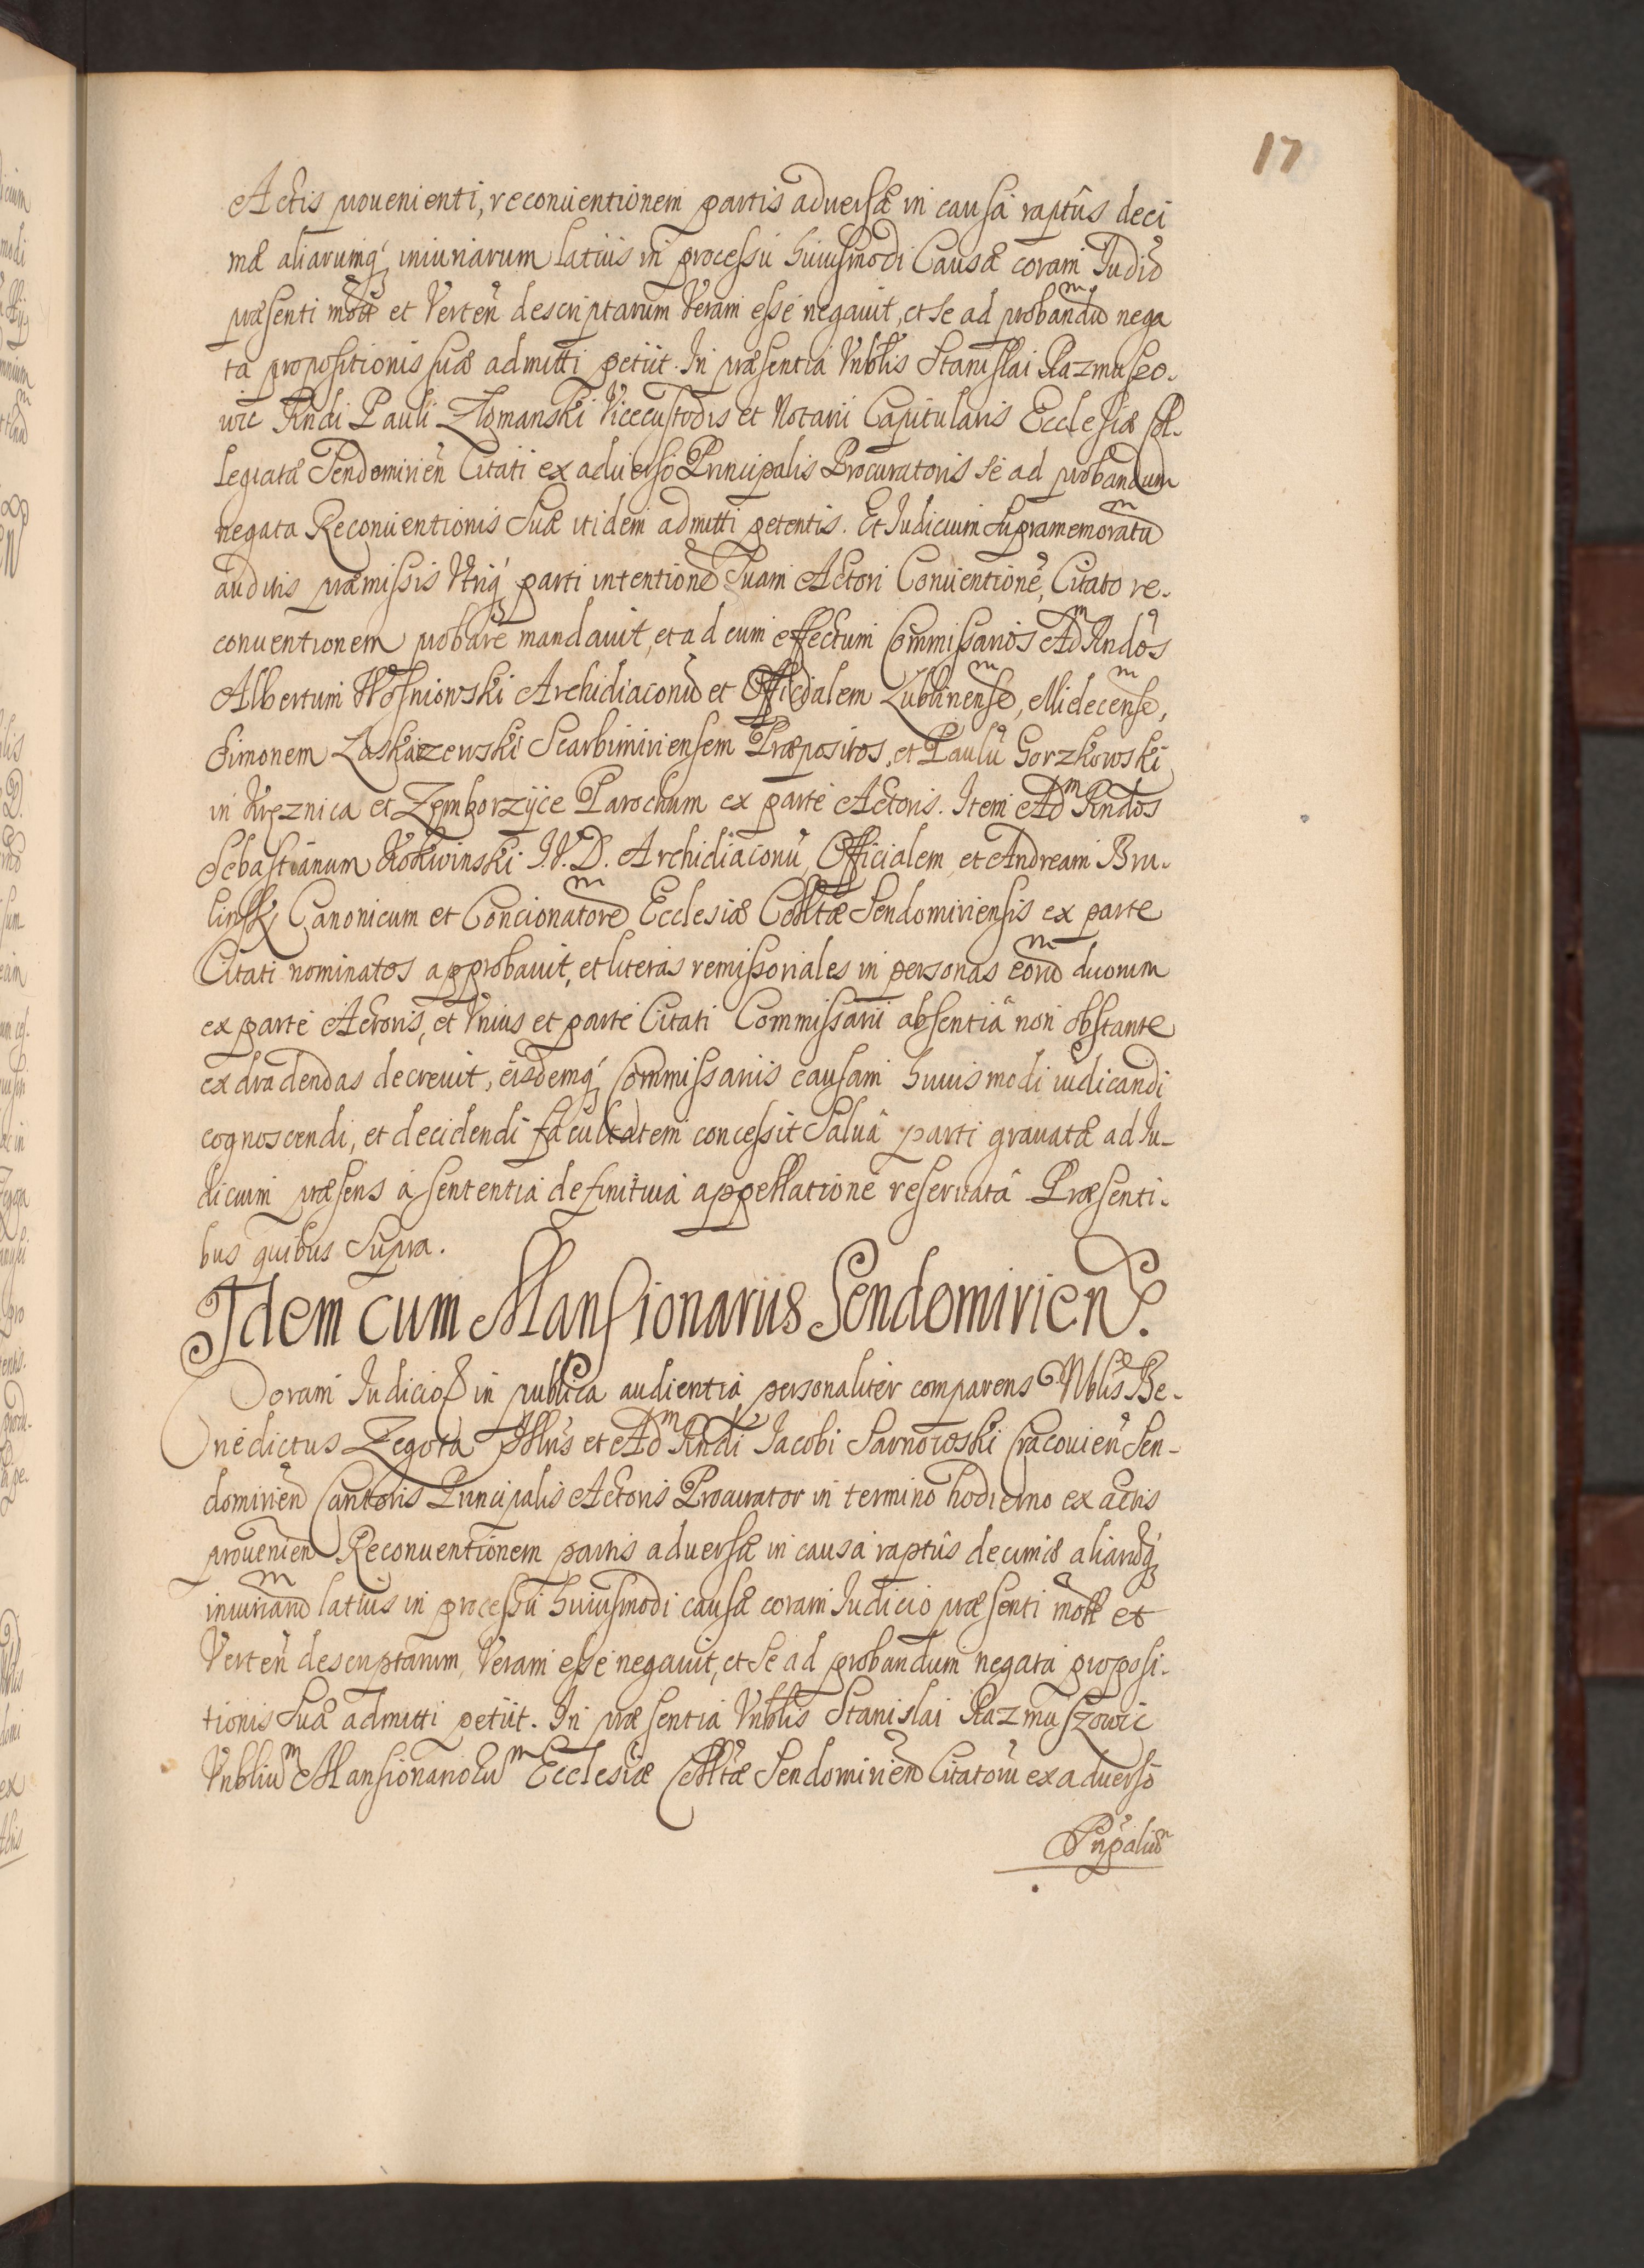 17
Actis prouenienti, reconuentionem partis aduersæ in causa raptûs deci
mæ aliarumq́ iniuriarum latius in processu huiusmodi Causæ coram Iudiō
præsenti motæ et Verteñ descriptarum Veram esse negauit, et se ad probandū nega
ta propositionis suæ admitti petiit. In præsentia Vnblis Stanislai Razmuszo-
wic Rndi Pauli Zlomanski Vicecustodis et Notarii Capitularis Ecclesiæ Col-
legiatæ Sendomirieñ Citati ex aduerso Principalis Procuratoris se ad probandum
negata Reconuentionis Suæ itidem admitti petentis. Et Iudicium Supramemoratū
auditis præmissis Vtriq́ parti intentionē Suam Actori Conuentionē, Citato re-
conuentionem probare mandauit, et ad eum effectum Commissarios Adm Rndos
Albertum Wosniowski Archidiaconū et Officialem Lublinensē, Midecensē,
Simonem Laskazewski Scarbimiriensem Præpositos, et Paulū Gorzkowski
in Kręznica et Zęmborzyce Parochum ex parte Actoris. Item Adm Rndos
Sebastianum Kokwinski I.V.D. Archidiaconū, Officialem, et Andream Bru-
linski Canonicum et Concionatorē Ecclesiæ Colltæ Sendomiriensis ex parte
Citati nominatos approbauit, et literas remissoriales in personas eorū duorum
ex parte Actoris, et Vnius et parte Citati Commissarii absentiâ non obstante
extradendas decreuit, eisdemq́ Commissariis causam huiusmodi iudicandi
cognoscendi, et decidendi facultatem concessit Saluâ parti grauatæ ad Iu-
dicium præsens à sententia definitiua appellatione reseruatâ Præsenti-
bus quibus Supra.
Idem cum Mansionariis Sendomirien.
Coram Iudicio in publica audientia personaliter comparens Nblis Be-
nedictus Zegota Illris et Adm Rndi Iacobi Sarnowski Cracouieñ Sen-
domirieñ Cantoris Principalis Actoris Procurator in termino hodierno ex actis
prouenieñ Reconuentionem partis aduersæ in causa raptûs decimæ aliarūq́
iniuriarū latius in processu huiusmodi causæ coram Iudicio præsenti motæ et
Verteñ descriptarum, Veram esse negauit, et se ad probandum negata proposi-
tionis Suæ admitti petiit. In præsentia Vnblis Stanislai Razmuszowic
Vnblium Mansionariorum Ecclesiæ Colltæ Sendomirieñ Citatorū ex aduerso